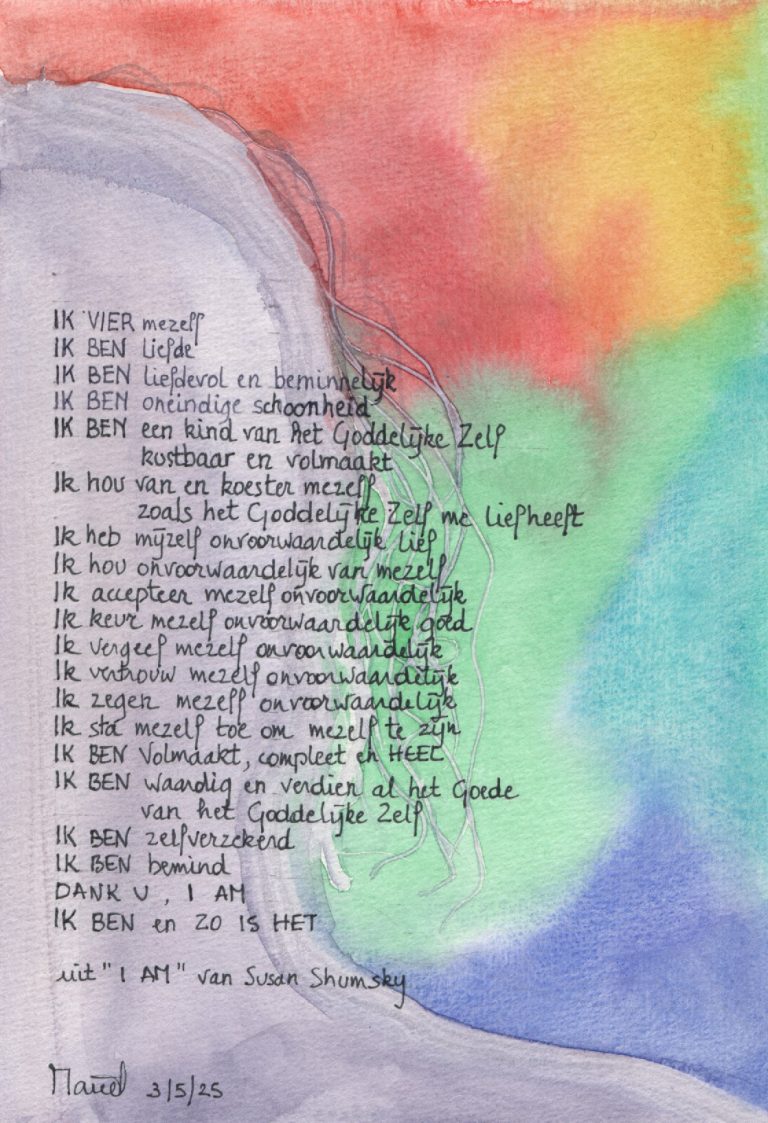 IK VIER mezelf
IK BEN liefde
IK BEN liefdevol en beminnelijk
IK BEN oneindige schoonheid
IK BEN een kind van het Goddelijke Zelf
kostbaar en volmaakt
Ik hou van en koester mezelf
zoals het Goddelijke Zelf me liefheeft
Ik heb mijzelf onvoorwaardelijk lief
Ik hou onvoorwaardelijk van mezelf
Ik accepteer mezelf onvoorwaardelijk
Ik keur mezelf onvoorwaardelijk goed
Ik vergeef mezelf onvoorwaardelijk
Ik vertrouw mezelf onvoorwaardelijk
Ik zegen mezelf onvoorwaardelijk
Ik sta mezelf toe om mezelf te zijn
IK BEN Volmaakt, compleet en HEEL
IK BEN waardig en verdien al het Goede
van het Goddelijke Zelf
IK BEN zelfverzekerd
IK BEN bemind
DANK U, I AM
IK BEN en ZO IS HET
uit "I AM" van Susan Shumsky
3/5/25